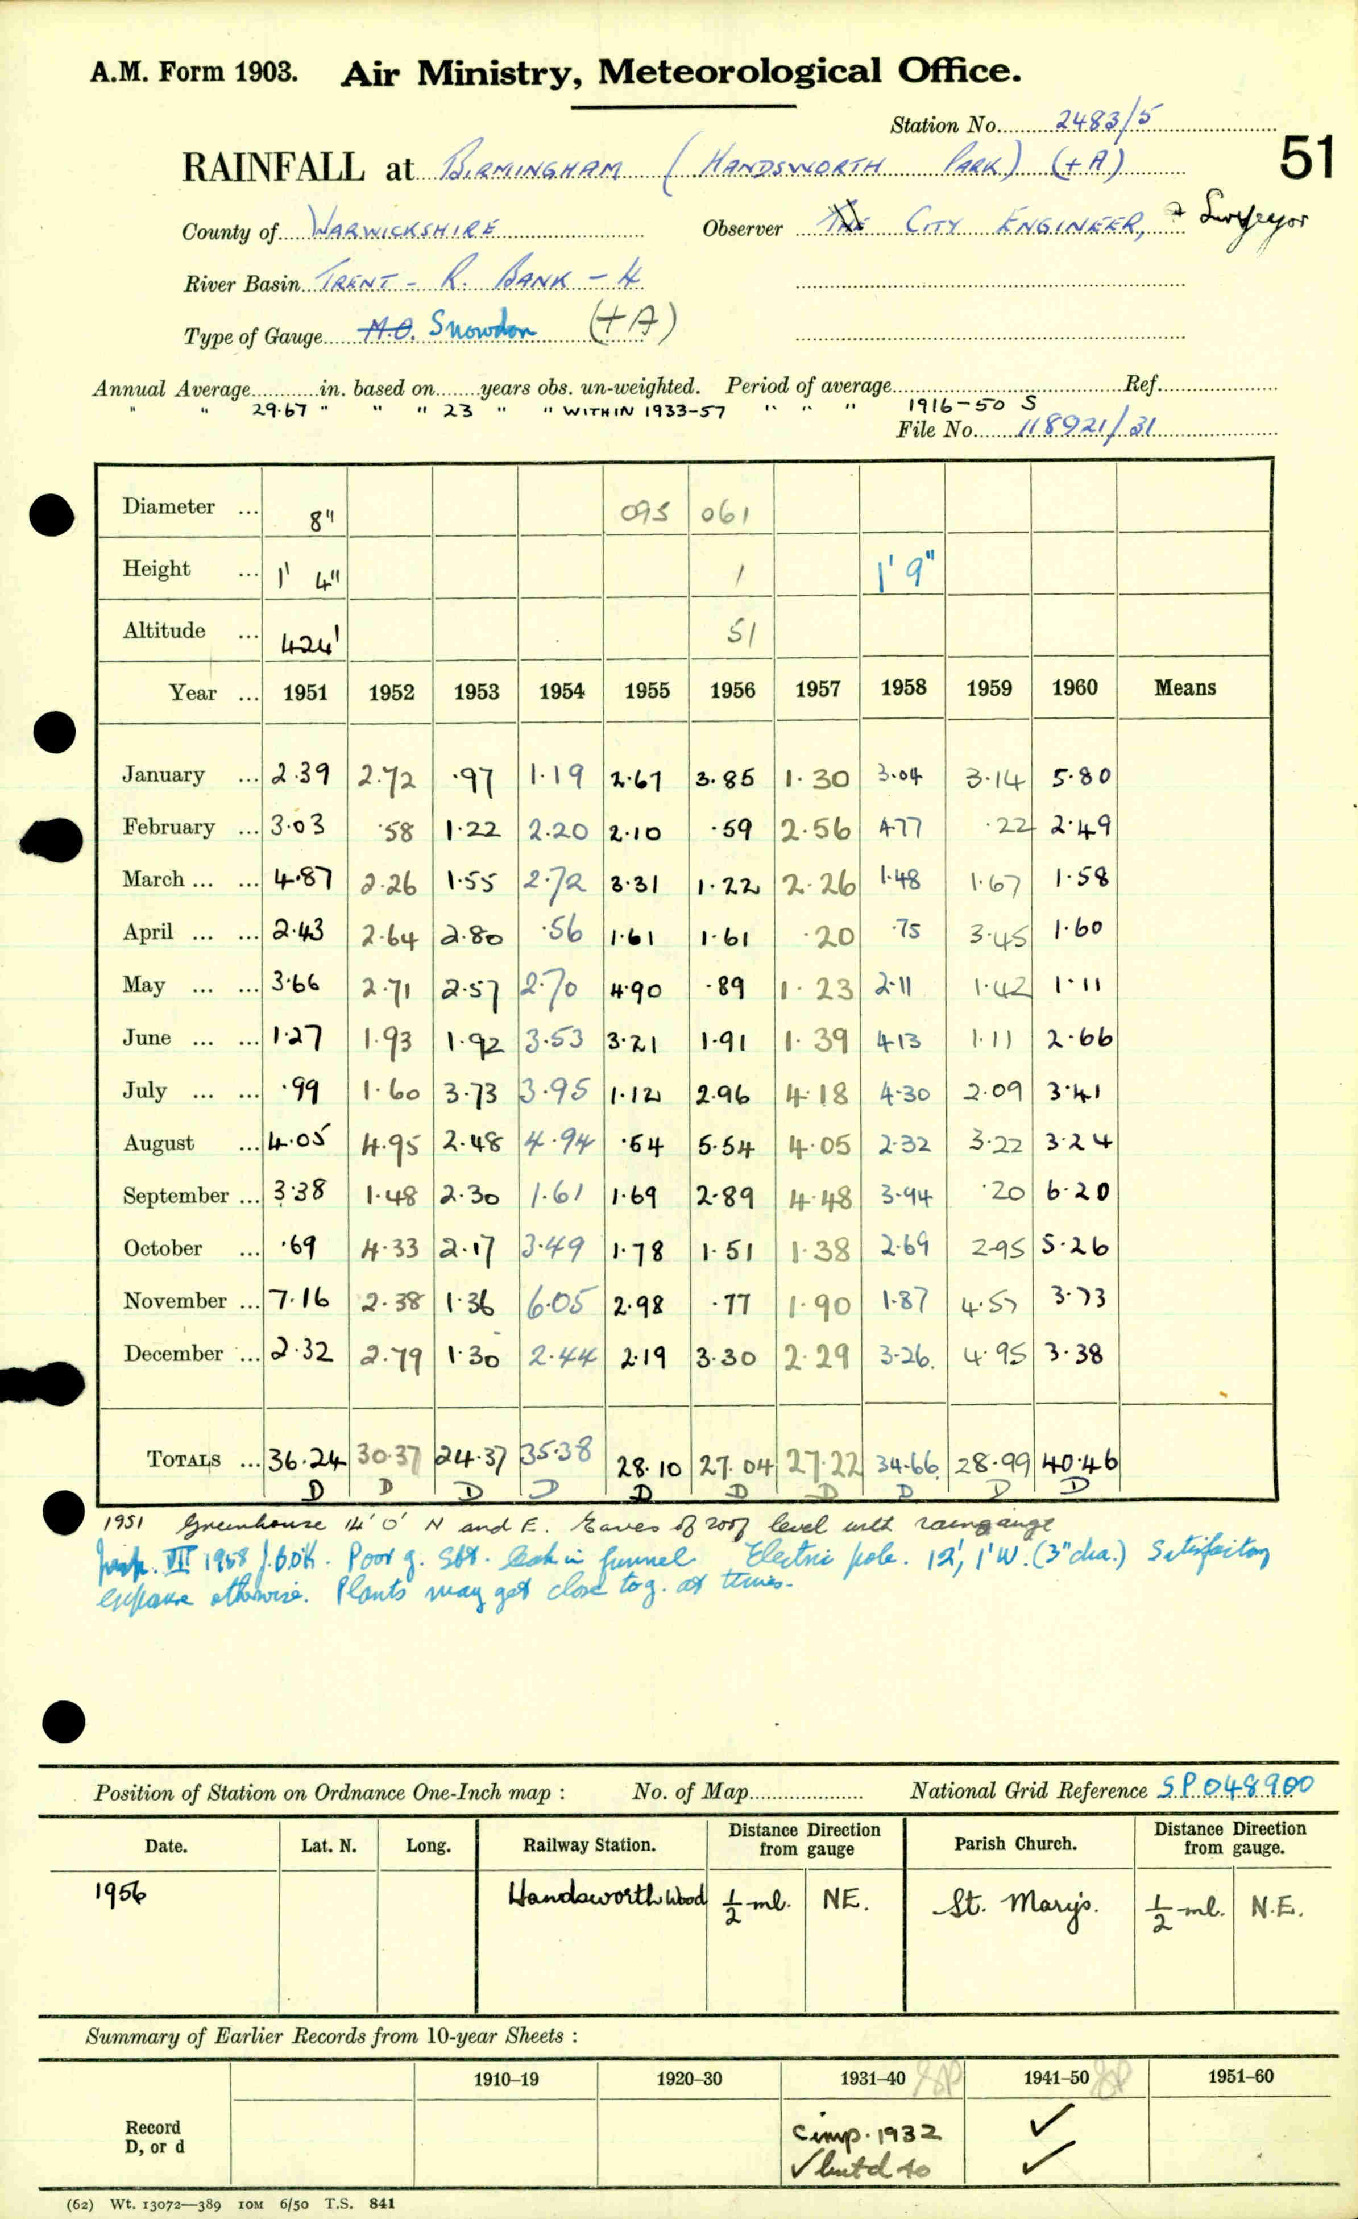 A.M. Form 1903. Air Ministry, Meteorological Office.
Station No. 2483/5
RAINFALL at BIRMINGHAM (HANDSWORTH PARK) (+A) 51
County of WARWICKSHIRE Observer THE CITY ENGINEER, + Surveyor
River Basin TRENT - R. BANK - 4
Type of Gauge M.O. Snowdon (+A)
Annual Average in. based on years obs. un-weighted. Period of average Ref.
" " 29.67 " " " 23 " " WITHIN 1933-57 " " " 1916-50 S
File No. 118921/31
Diameter ... 8" 093 061
Height ... 1' 4" 1 1' 9"
Altitude ... 424' 51
Year ... 1951 1952 1953 1954 1955 1956 1957 1958 1959 1960 Means
January ... 2.39 2.72 .97 1.19 2.67 3.85 1.30 3.04 3.14 5.80
February ... 3.03 .58 1.22 2.20 2.10 .59 2.56 4.77 .22 2.49
March ... ... 4.87 2.26 1.55 2.72 3.31 1.22 2.26 1.48 1.67 1.58
April ... ... 2.43 2.64 2.80 .56 1.61 1.61 .20 .75 3.45 1.60
May ... ... 3.66 2.71 2.57 2.70 4.90 .89 1.23 2.11 1.42 1.11
June ... ... 1.27 1.93 1.92 3.53 3.21 1.91 1.39 4.13 1.11 2.66
July ... ... .99 1.60 3.73 3.95 1.12 2.96 4.18 4.30 2.09 3.41
August ... 4.05 4.95 2.48 4.94 .54 5.54 4.05 2.32 3.22 3.24
September ... 3.38 1.48 2.30 1.61 1.69 2.89 4.48 3.94 .20 6.20
October ... .69 4.33 2.17 3.49 1.78 1.51 1.38 2.69 2.95 5.26
November ... 7.16 2.38 1.36 6.05 2.98 .77 1.90 1.87 4.57 3.73
December ... 2.32 2.79 1.30 2.44 2.19 3.30 2.29 3.26 4.95 3.38
TOTALS ... 36.24 30.37 24.37 35.38 28.10 27.04 27.22 34.66 28.99 40.46
D D D D D D D D D D
1951 Greenhouse 14' 0" N and E. Eaves of roof level with raingauge
Insp. VII 1958 Poor g. Sbt. leak in funnel Electric pole. 12', 1' W. (3" dia.) Satisfactory
exposure otherwise. Plants may get close to g. at times.
Position of Station on Ordnance One-Inch map : No. of Map National Grid Reference SP 048900
Date. Lat. N. Long. Railway Station. Distance Direction from gauge Parish Church. Distance Direction from gauge.
1956 Handsworth Wood 1/2 ml. NE. St. Mary's. 1/2 ml. N.E.
Summary of Earlier Records from 10-year Sheets :
1910–19 1920–30 1931–40 1941–50 1951–60
Record
D, or d
comp. 1932 ✓
✓ but d 40 ✓
(62) Wt. 13072—389 10M 6/50 T.S. 841